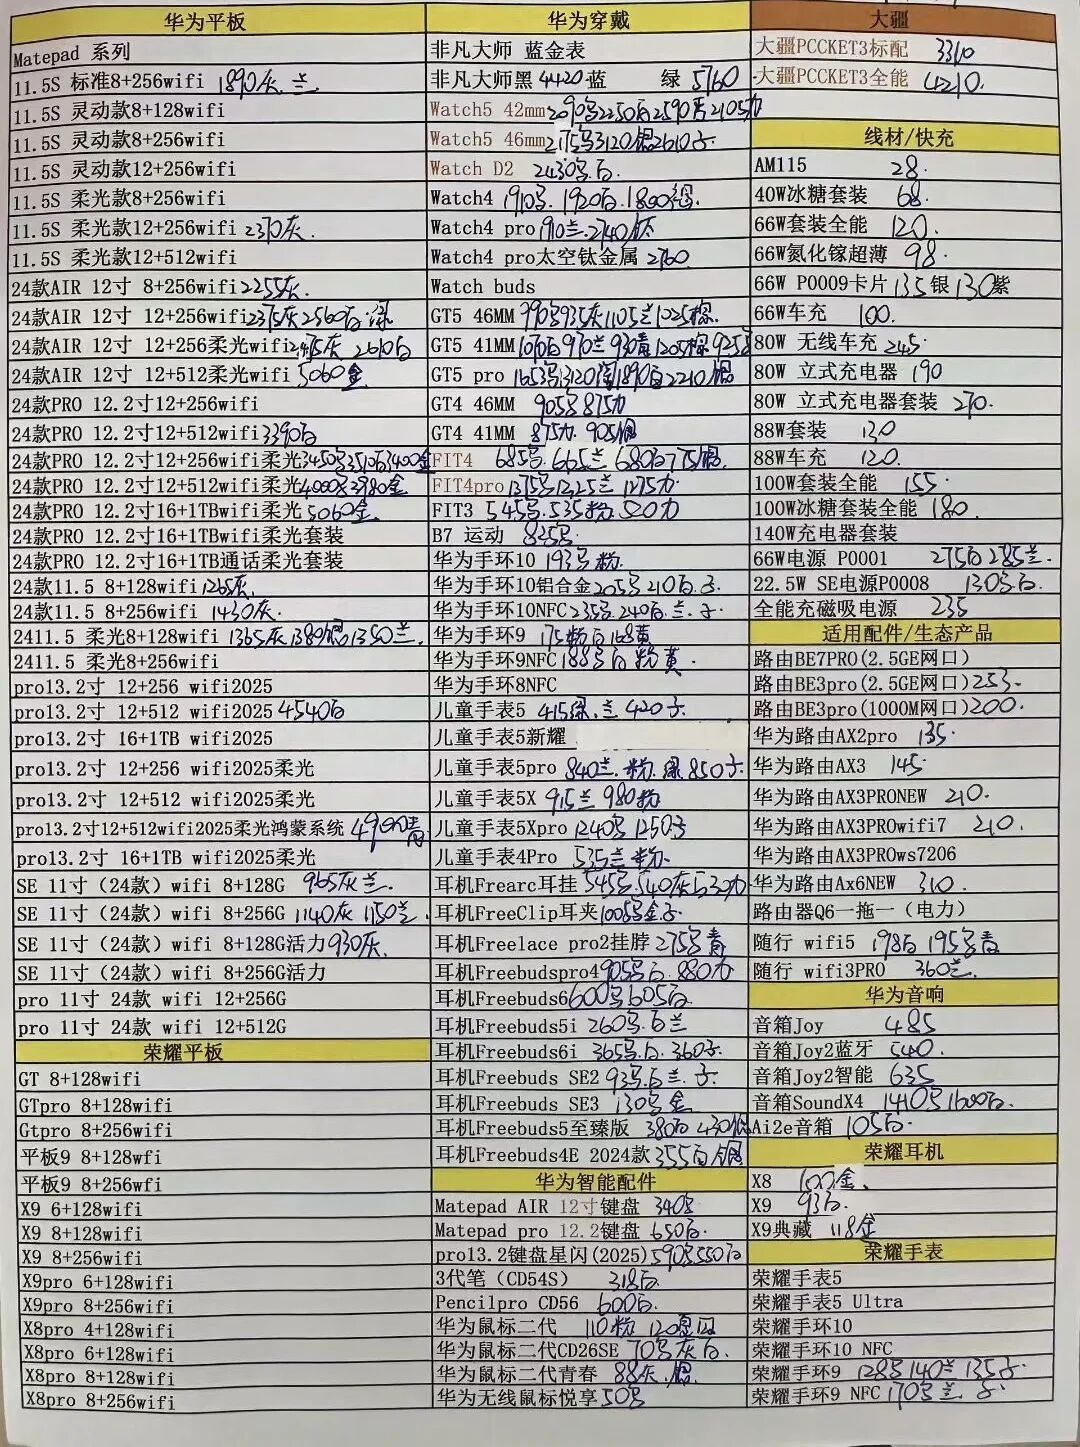 华为平板
Matepad 系列
11.5S 标准8+256wifi 1890灰.兰
11.5S 灵动款8+128wifi
11.5S 灵动款8+256wifi
11.5S 灵动款12+256wifi
11.5S 柔光款8+256wifi
11.5S 柔光款12+256wifi 2370灰.
11.5S 柔光款12+512wifi
24款AIR 12寸 8+256wifi 2255灰.
24款AIR 12寸 12+256wifi 2375灰 2560白.绿
24款AIR 12寸 12+256柔光wifi 2475灰 2610白
24款AIR 12寸 12+512柔光wifi 5060金
24款PRO 12.2寸12+256wifi
24款PRO 12.2寸12+512wifi 3390白
24款PRO 12.2寸12+256wifi柔光 3450号3510白3400金
24款PRO 12.2寸12+512wifi柔光 4000号3980金
24款PRO 12.2寸16+1TBwifi柔光 5060金
24款PRO 12.2寸16+1TBwifi柔光套装
24款PRO 12.2寸16+1TB通话柔光套装
24款11.5 8+128wifi 1265灰.
24款11.5 8+256wifi 1430灰.
2411.5 柔光8+128wifi 1365灰1380银1350兰.
2411.5 柔光8+256wifi
pro13.2寸 12+256 wifi2025
pro13.2寸 12+512 wifi2025 4540白
pro13.2寸 16+1TB wifi2025
pro13.2寸 12+256 wifi2025柔光
pro13.2寸 12+512 wifi2025柔光
pro13.2寸12+512wifi2025柔光鸿蒙系统 4900青
pro13.2寸 16+1TB wifi2025柔光
SE 11寸（24款）wifi 8+128G 965灰兰.
SE 11寸（24款）wifi 8+256G 1140灰 1150兰.
SE 11寸（24款）wifi 8+128G活力 930灰.
SE 11寸（24款）wifi 8+256G活力
pro 11寸 24款 wifi 12+256G
pro 11寸 24款 wifi 12+512G
荣耀平板
GT 8+128wifi
GTpro 8+128wifi
Gtpro 8+256wifi
平板9 8+128wfi
平板9 8+256wfi
X9 6+128wifi
X9 8+128wifi
X9 8+256wifi
X9pro 6+128wifi
X9pro 8+256wifi
X8pro 4+128wifi
X8pro 6+128wifi
X8pro 8+128wifi
X8pro 8+256wifi
华为穿戴
非凡大师 蓝金表
非凡大师黑 4420 蓝 绿 5760
Watch5 42mm 2090号2250白2590青2105力
Watch5 46mm 2175号3120银2610子
Watch D2 2430号.白.
Watch4 1910号. 1920白. 1800
Watch4 pro 1910兰.2740
Watch4 pro太空钛金属 2760
Watch buds
GT5 46MM 990号935灰1105兰1025棕.
GT5 41MM 1070白970兰930青1205棕925
GT5 pro 1165号 1890白2210银
GT4 46MM 905号 875力
GT4 41MM 875力. 905银
FIT4 685号. 665兰 680白775银.
FIT4pro 1375号1225兰 1275力
FIT3 545号.535粉.520力
B7 运动 825号
华为手环10 193号.粉.
华为手环10铝合金 205号210白.子
华为手环10NFC 235号.240白.兰.子
华为手环9 175粉白168黄
华为手环9NFC 188号白粉黄.
华为手环8NFC
儿童手表5 415绿.兰 420子.
儿童手表5新耀
儿童手表5pro 840兰.粉.绿850子
儿童手表5X 915兰 980粉
儿童手表5Xpro 1240号1250子
儿童手表4Pro 535兰粉.
耳机Frearc耳挂 545号.540灰530力
耳机FreeClip耳夹 1005号金子
耳机Freelace pro2挂脖 275号青
耳机Freebudspro4 905号白.880力
耳机Freebuds6 600号605白
耳机Freebuds5i 260号.白兰
耳机Freebuds6i 365号.白.360子.
耳机Freebuds SE2 93号.白兰.子
耳机Freebuds SE3 130号金
耳机Freebuds5至臻版 380白 430银
耳机Freebuds4E 2024款 355白银
华为智能配件
Matepad AIR 12寸键盘 340号
Matepad pro 12.2键盘 650白.
pro13.2键盘星闪(2025) 590号550白
3代笔（CD54S） 318白
Pencilpro CD56 600白.
华为鼠标二代 110粉 120
华为鼠标二代CD26SE 70号灰白.
华为鼠标二代青春 88灰.银.
华为无线鼠标悦享 50号
大疆
大疆PCCKET3标配 3310
大疆PCCKET3全能 4210.
线材/快充
AM115 28.
40W冰糖套装 68.
66W套装全能 120.
66W氮化镓超薄 98.
66W P0009卡片 135银130紫
66W车充 100.
80W 无线车充 245.
80W 立式充电器 190
80W 立式充电器套装 270.
88W套装 130
88W车充 120.
100W套装全能 155.
100W冰糖套装全能 180.
140W充电器套装
66W电源 P0001 275白285兰.
22.5W SE电源P0008 130号白.
全能充磁吸电源 235
适用配件/生态产品
路由BE7PRO(2.5GE网口)
路由BE3pro(2.5GE网口) 253.
路由BE3pro(1000M网口) 200.
华为路由AX2pro 135.
华为路由AX3 145.
华为路由AX3PRONEW 210.
华为路由AX3PROwifi7 210.
华为路由AX3PROws7206
华为路由Ax6NEW 310.
路由器Q6一拖一（电力）
随行 wifi5 198白 195号青
随行 wifi3PRO 360兰.
华为音响
音箱Joy 485
音箱Joy2蓝牙 540.
音箱Joy2智能 635
音箱SoundX4 1410号1600白.
Ai2e音箱 105白.
荣耀耳机
X8 100金.
X9 93白.
X9典藏 118金
荣耀手表
荣耀手表5
荣耀手表5 Ultra
荣耀手环10
荣耀手环10 NFC
荣耀手环9 128号140兰135子
荣耀手环9 NFC 170号兰.子